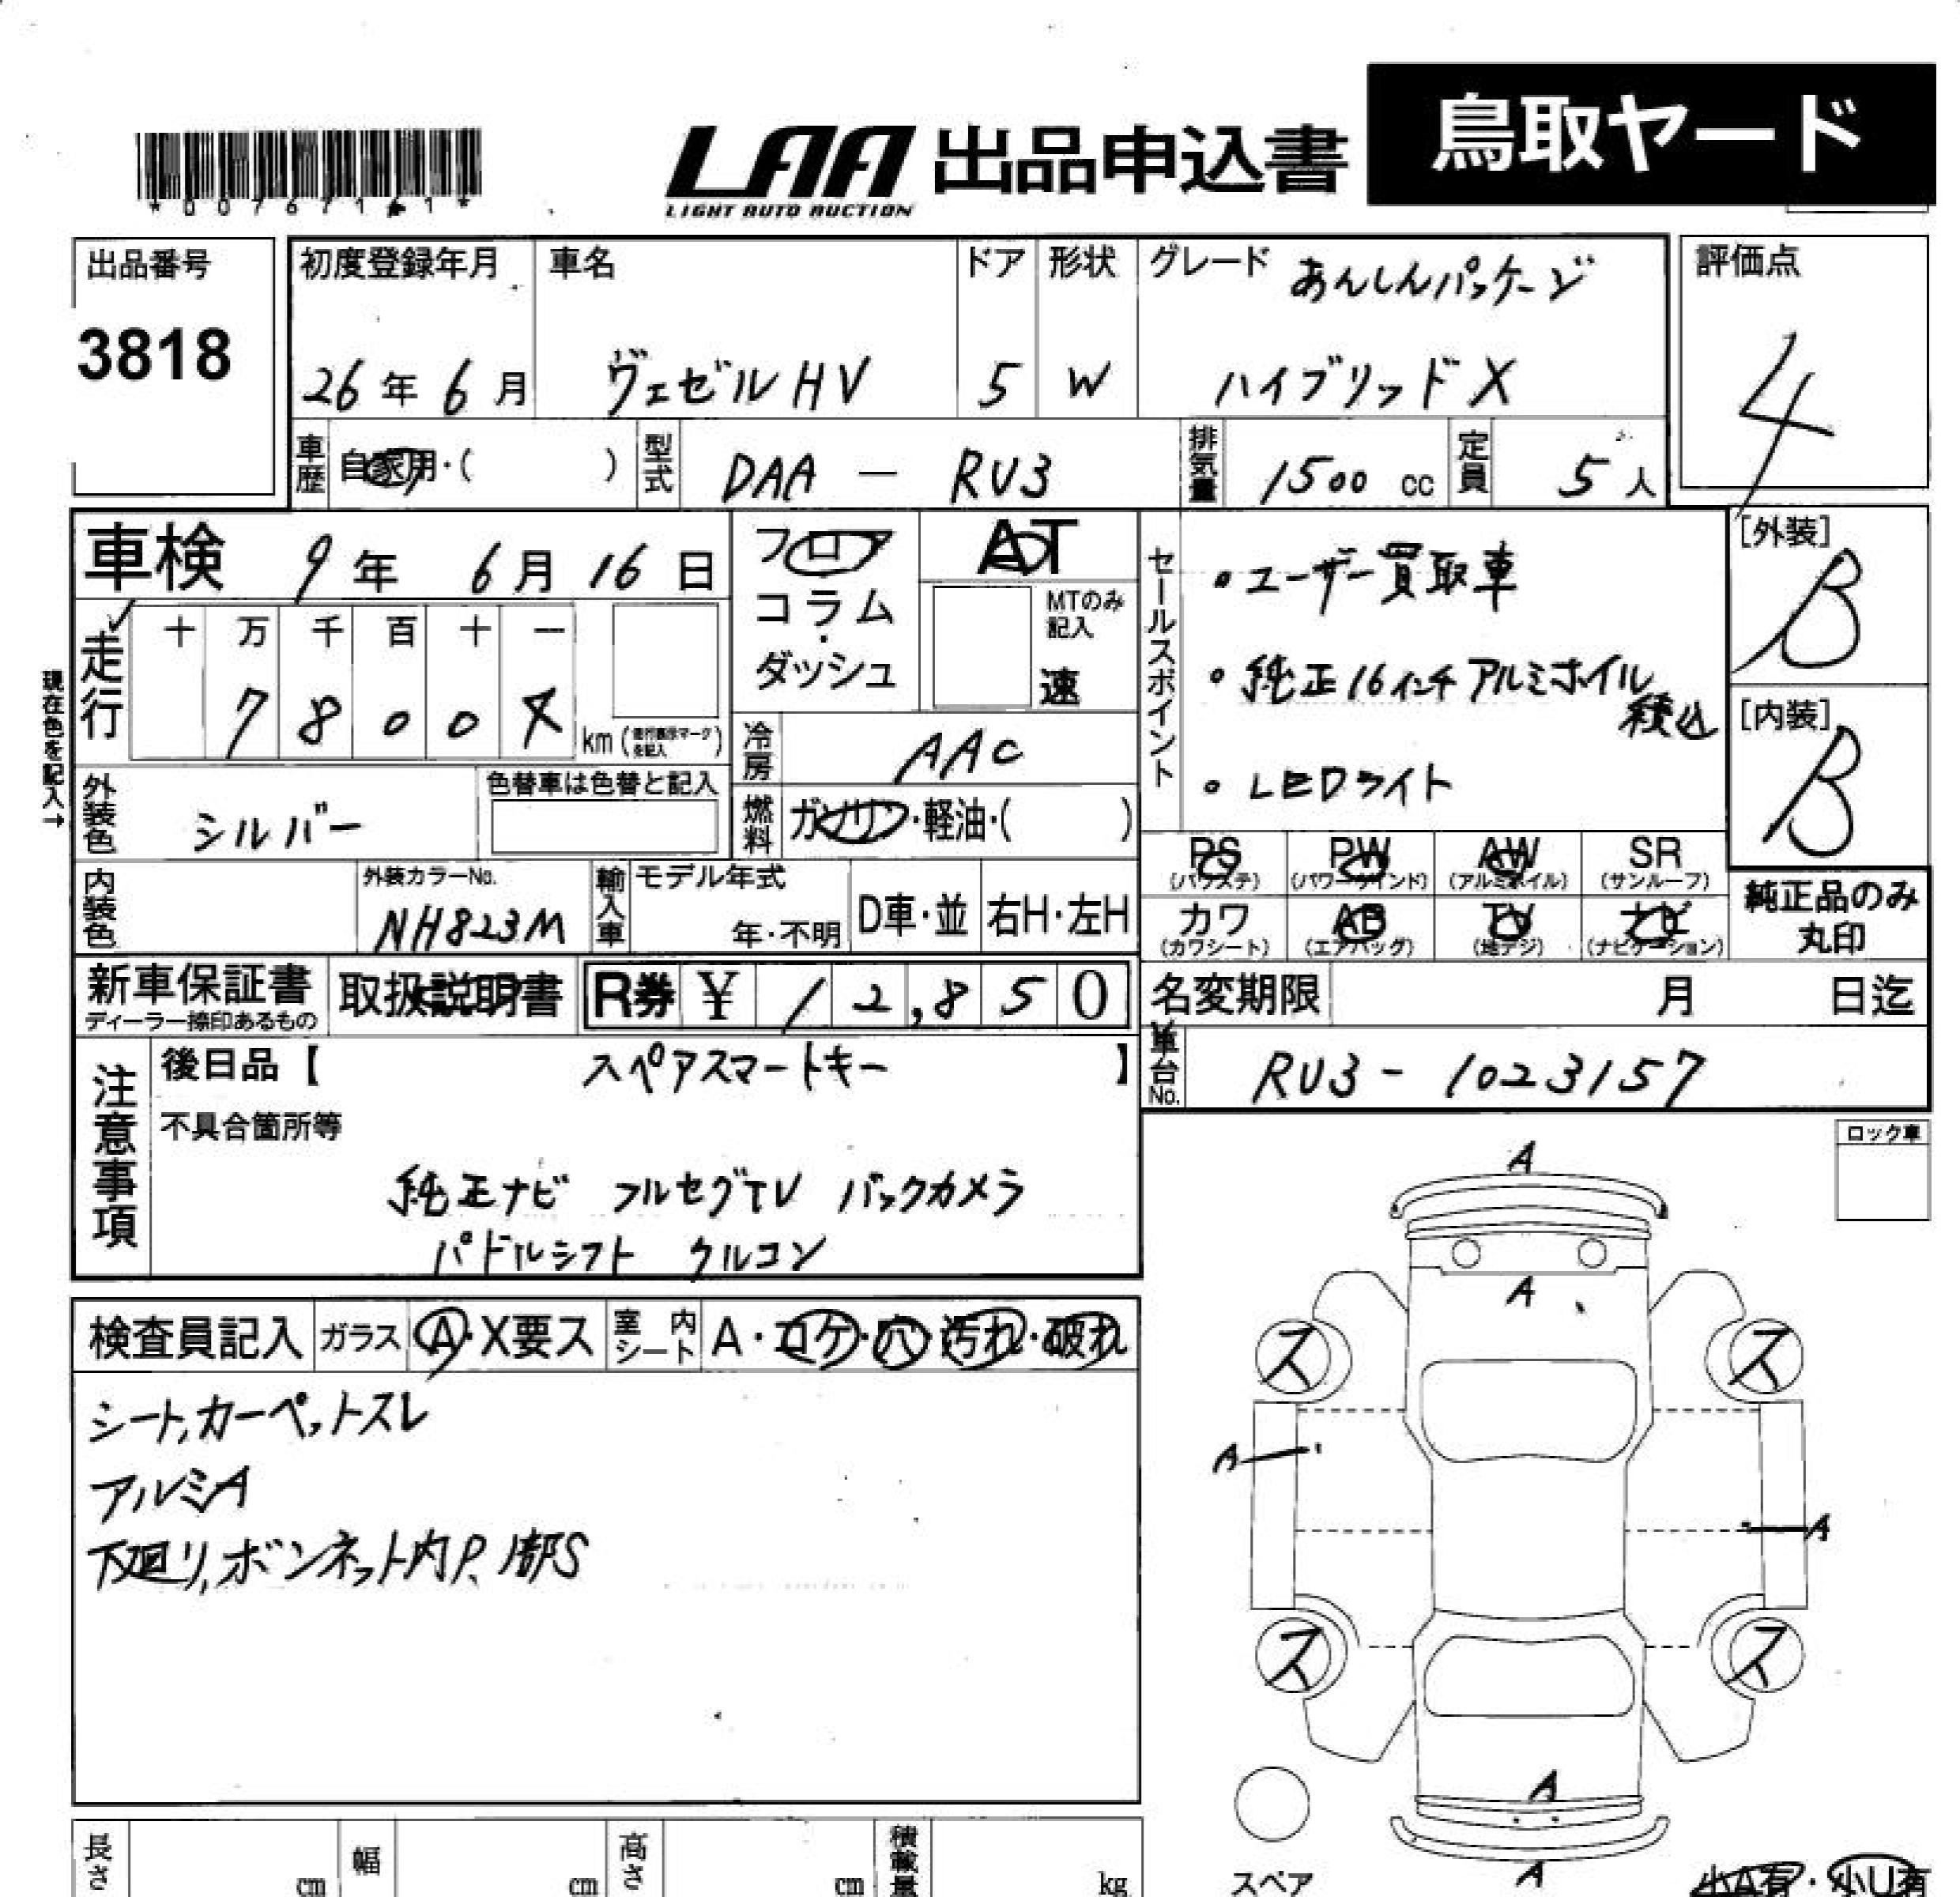 鳥取ヤード
LAA 出品申込書
LIGHT AUTO AUCTION
出品番号
3818
初度登録年月
26年6月
車名
ヴェゼルHV
ドア
5
形状
W
グレード
あんしんパッケージ
ハイブリッドX
評価点
4
車歴
自家用・( )
型式
DAA － RU3
排気量
1500 cc
定員
5人
車検 9年 6月 16日
フロア
コラム
・
ダッシュ
AT
MTのみ
記入
速
セールスポイント
・ユーザー買取車
・純正16インチアルミホイル
積込
・LEDライト
[外装]
B
[内装]
B
現在色を記入→
走行
十 万 千 百 十 一
km
冷房
AAC
外装色
シルバー
色替車は色替と記入
燃料
ガソリン・軽油・( )
PS
(パワステ)
PW
(パワーウインド)
AW
(アルミホイル)
SR
(サンルーフ)
内装色
外装カラーNo.
NH823M
輸入車
モデル年式
年・不明
D車・並
右H・左H
カワ
(カワシート)
AB
(エアバッグ)
TV
(地デジ)
ナビ
(ナビゲーション)
純正品のみ
丸印
新車保証書
ディーラー捺印あるもの
取扱説明書
R券 ¥ 12,850
名変期限 月 日迄
車台No.
RU3 - 1023157
注意事項
後日品【 スペアスマートキー 】
不具合箇所等
純正ナビ フルセグTV バックカメラ
パドルシフト クルコン
ロック車
検査員記入
ガラス
A・X要ス
室内シート
A・コゲ・穴・汚れ・破れ
シート,カーペットスレ
アルミA
下廻り,ボンネット内P,1部S
A
A
ス
ス
A
A
ス
ス
A
A
スペア
小A有・小U有
長さ
cm
幅
cm
高さ
cm
積載量
kg